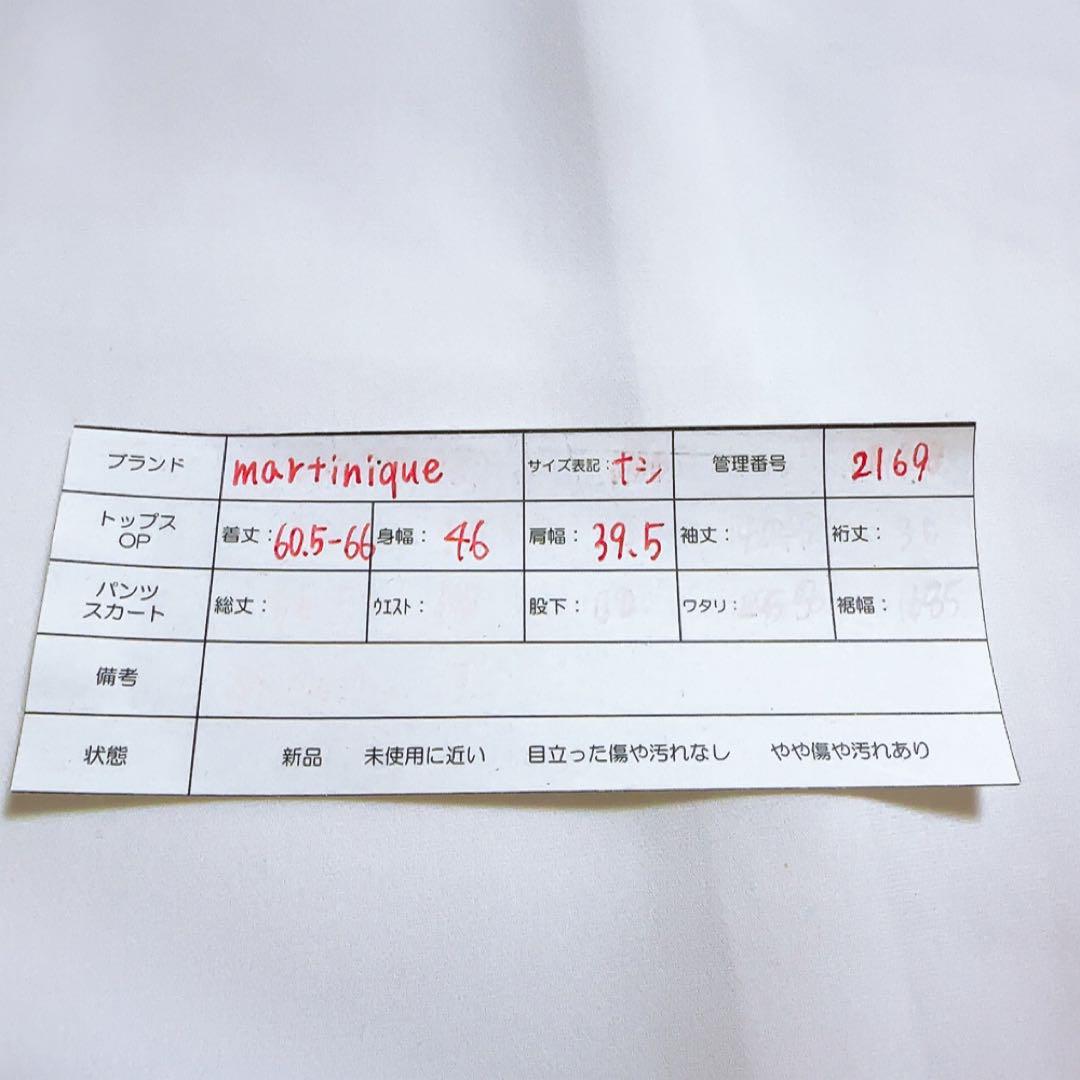 ブランド martinique サイズ表記:ナシ 管理番号 2169
トップス
OP
着丈:60.5-66 身幅: 46 肩幅: 39.5 袖丈: 裄丈:
パンツ
スカート
総丈: ウエスト: 股下: ワタリ: 裾幅:
備考
状態 新品 未使用に近い 目立った傷や汚れなし やや傷や汚れあり